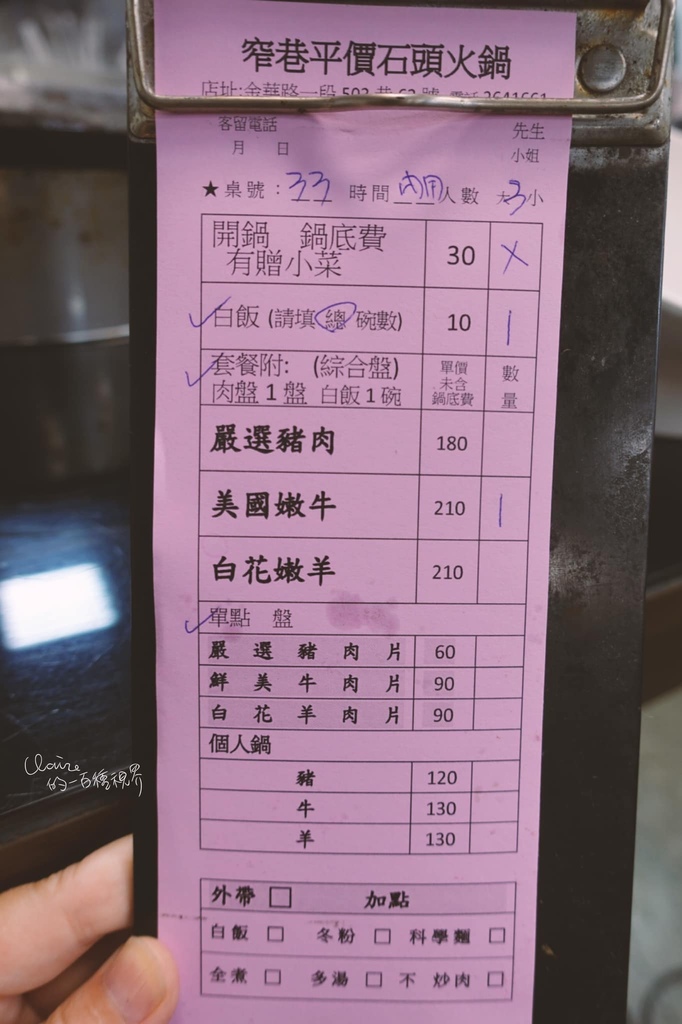 窄巷平價石頭火鍋
店址:金華路一段503巷62號 電話2641661
客留電話 先生
月 日 小姐
★桌號:33 時間 內用 人數 大3小
開鍋 鍋底費 30 X
有贈小菜
白飯(請填總碗數) 10 1
套餐附: (綜合盤) 單價 數
肉盤1盤 白飯1碗 未含 量
鍋底費
嚴選豬肉 180
美國嫩牛 210 1
白花嫩羊 210
單點 盤
嚴選豬肉片 60
鮮美牛肉片 90
白花羊肉片 90
個人鍋
豬 120
牛 130
羊 130
外帶 □ 加點
白飯 □ 冬粉 □ 科學麵 □
全煮 □ 多湯 □ 不炒肉 □
Claire
的一百種視界